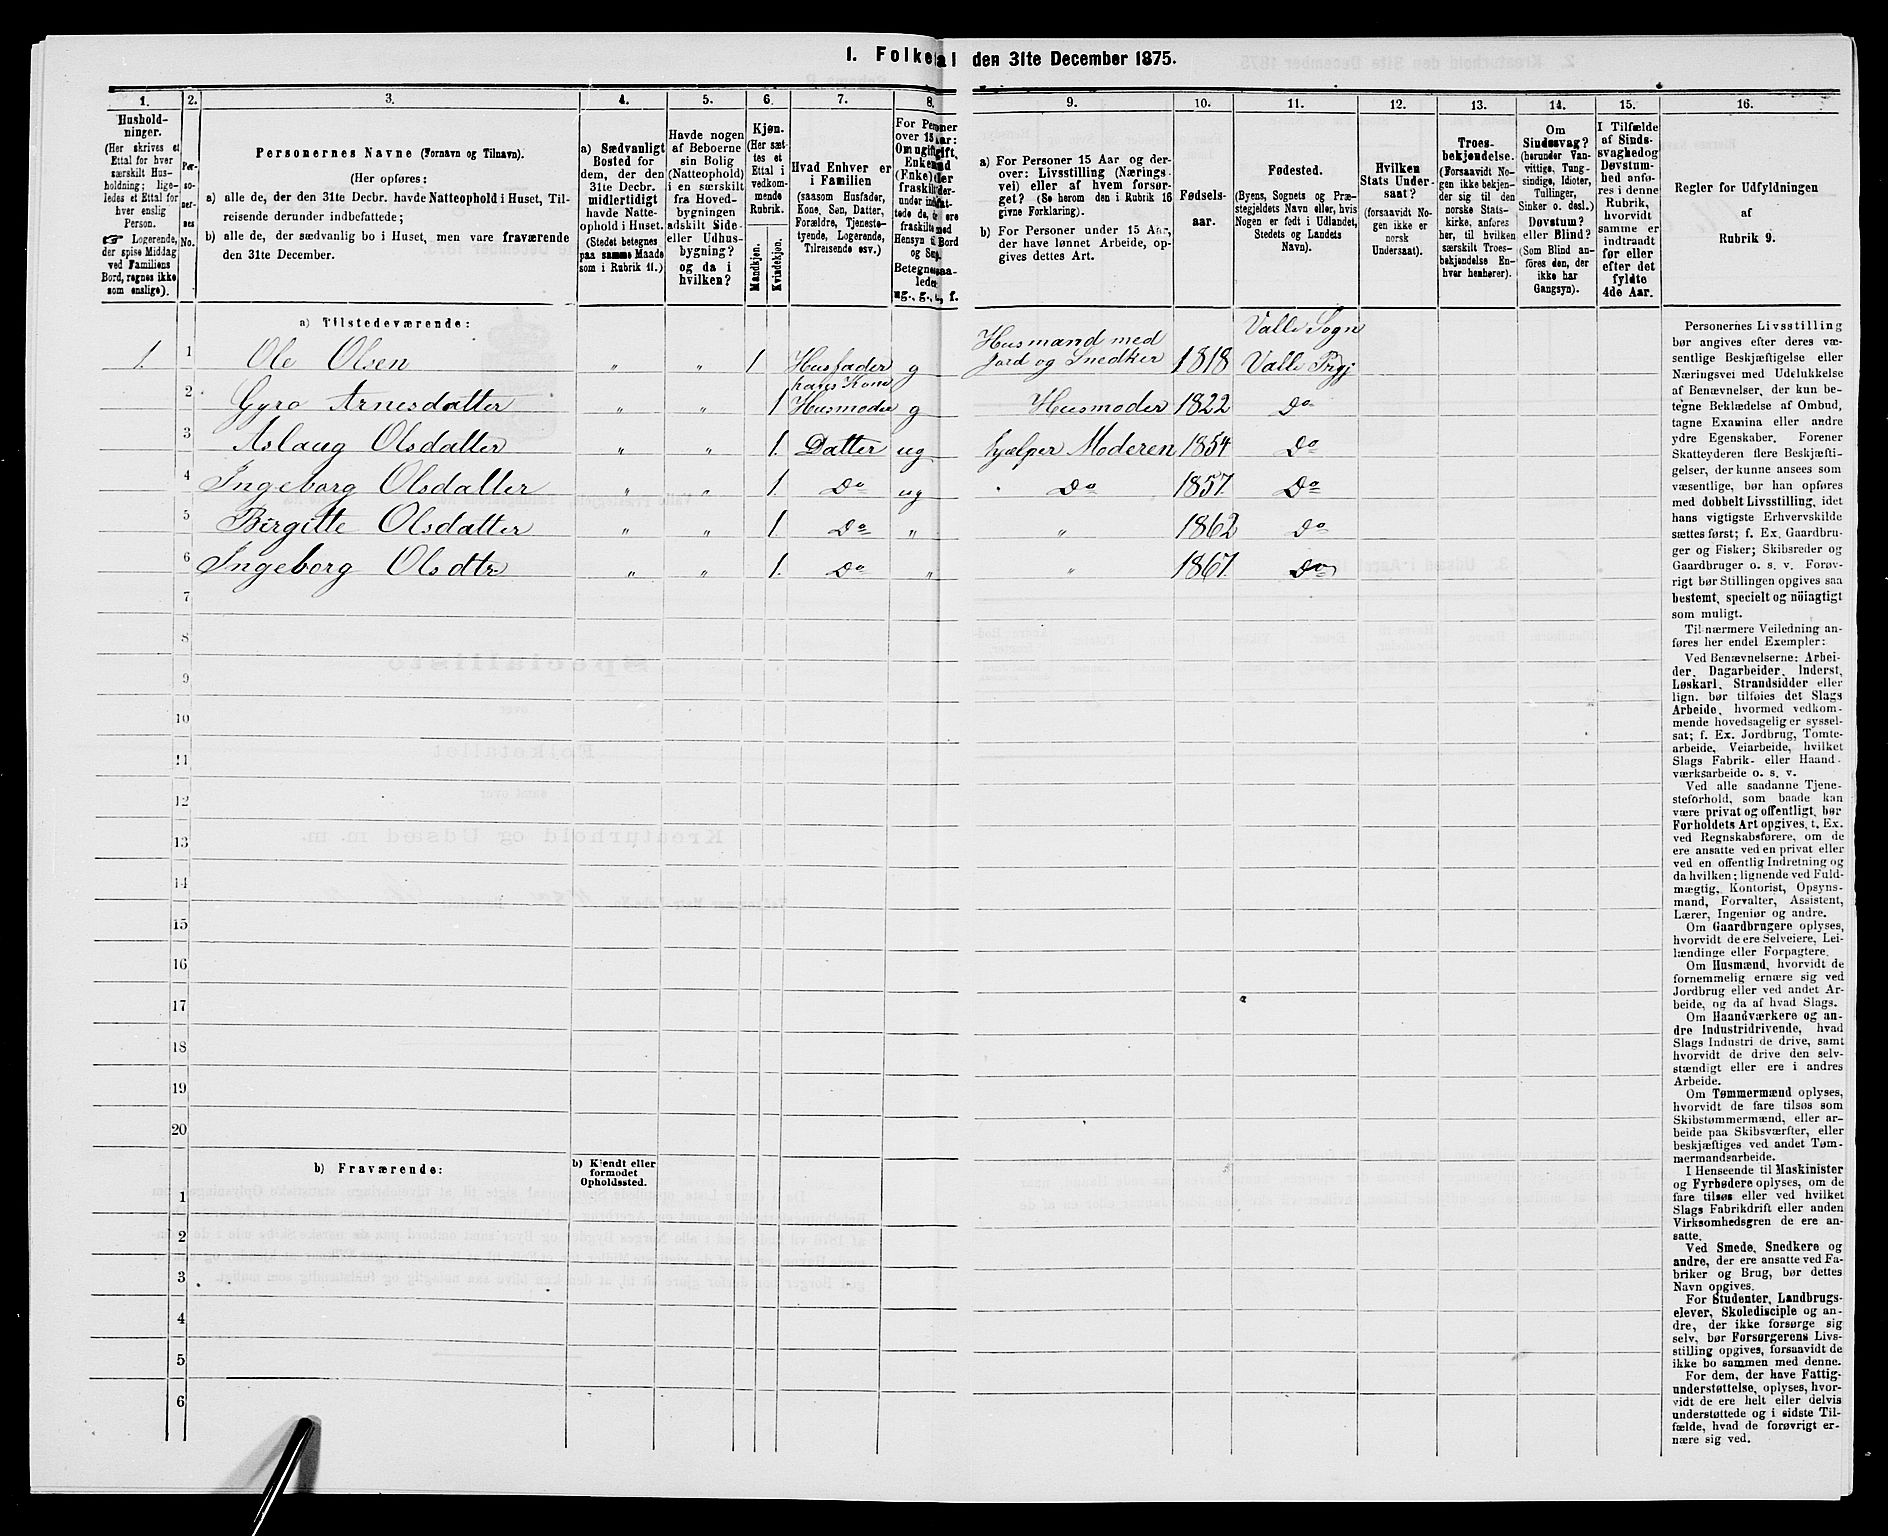 1. Folketal den 31te December 1875.
1.
Hushold-
ninger.
(Her skrives et
Ettal for hver
særskilt Hus-
holdning; lige-
ledes et Ettal for
hver enslig
Person.
☞ Logerende,
der spise Middag
ved Familiens
Bord, regnes ikke
som enslige).
2.
Per-
so-
ner-
nes
No.
3.
Personernes Navne (Fornavn og Tilnavn).
(Her opføres:
a) alle de, der den 31te Decbr. havde Natteophold i Huset, Til-
reisende derunder indbefattede;
b) alle de, der sædvanlig bo i Huset, men vare fraværende
den 31te December.
4.
a) Sædvanligt
Bosted for
dem, der den
31te Decbr.
midlertidigt
havde Natte-
ophold i Huset.
(Stedet betegnes
paa samme Maade
som i Rubrik 11.)
5.
Havde nogen
af Beboerne
sin Bolig
(Natteophold)
i en særskilt
fra Hoved-
bygningen
adskilt Side-
eller Udhus-
bygning?
og da i
hvilken?
6.
Kjøn.
(Her sæt-
tes et
Ettal i
vedkom-
mende
Rubrik.
Mandkjøn.
Kvindekjøn.
7.
Hvad Enhver er
i Familien
(saasom Husfader,
Kone, Søn, Datter,
Forældre, Tjeneste-
tyende, Logerende,
Tilreisende osv.)
8.
9.
a) For Personer 15 Aar og der-
over: Livsstilling (Nærings-
vei) eller af hvem forsør-
get (Se herom den i Rubrik 16
givne Forklaring).
b) For Personer under 15 Aar,
der have lønnet Arbeide, op-
gives dettes Art.
10.
Fødsels-
aar.
11.
Fødested.
(Byens, Sognets og Præ-
stegjeldets Navn eller, hvis
Nogen er født i Udlandet,
Stedets og Landets
Navn).
12.
Hvilken
Stats Under-
saat?
(forsaavidt No-
gen ikke er
norsk
Undersaat).
13.
Troes-
bekjendelse.
(Forsaavidt No-
gen ikke bekjen-
der sig til den
norske Stats-
kirke, anføres
her, til hvilken
særskilt Troes-
bekjendelse En-
hver henhører).
14.
Om
Sindssvag?
(herunder Van-
vittige, Idioter,
Tullinger,
Sinker o. desl.)
Døvstum?
eller Blind?
(Som Blind an-
føres den, der
ikke har
Gangsyn).
15.
I Tilfælde
af Sinds-
svaghed og
Døvstum-
hed anfø-
res i denne
Rubrik,
hvorvidt
samme er
indtraadt
før eller
efter det
fyldte
4de Aar.
16.
Regler for Udfyldningen
af
Rubrik 9.
a) Tilstedeværende:
1. 1 Ole Olsen „ „ 1 Husfader g Husmand med Jord og Snedker 1818 Valle Sogn Valle Prgj
2 Gyro Arnesdatter „ „ 1 hans Kone Husmoder g Husmoder 1822 Do
3 Aslaug Olsdatter „ „ 1. Datter ug hjælper Moderen 1854 Do
4 Ingeborg Olsdatter „ „ 1. Do ug Do 1857. Do
5 Birgitte Olsdatter „ „ 1 Do „ „ 1862 Do
6 Ingeborg Olsdtr. „ „ 1. Do „ „ 1867. Do
7
8
9
10
11
12
13
14
15
16
17
18
19
20
b) Fraværende:
b) Kjendt eller
formodet
Opholdssted.
1
2
3
4
5
6
Personernes Livsstilling
bør angives efter deres væ-
sentlige Beskjæftigelse eller
Næringsvei med Udelukkelse
af Benævnelser, der kun be-
tegne Beklædelse af Ombud,
tagne Examina eller andre
ydre Egenskaber. Forener
Skatteyderen flere Beskjæfti-
gelser, der kunne ansees som
væsentlige, bør han opføres
med dobbelt Livsstilling, idet
hans vigtigste Erhvervskilde
sættes først; f. Ex. Gaardbru-
ger og Fisker; Skibsreder og
Gaardbruger o. s. v. Forøv-
rigt bør Stillingen opgives saa
bestemt, specielt og nöiagtigt
som muligt.
Til nærmere Veiledning an-
føres her endel Exempler:
Ved Benævnelserne: Arbei-
der, Dagarbeider, Inderst,
Løskarl, Strandsidder eller
lign. bør tilføies det Slags
Arbeide, hvormed vedkom-
mende hovedsagelig er syssel-
sat; f. Ex. Jordbrug, Tomte-
arbeide, Veiarbeide, hvilket
Slags Fabrik- eller Haand-
værksarbeide o. s. v.
Ved alle saadanne Tjene-
steforhold, som baade kan
være privat og offentligt, bør
Forholdets Art opgives, t. Ex.
ved Regnskabsførere, om de
ere ansatte ved en privat eller
ved en offentlig Indretning og
da hvilken; lignende ved Fuld-
mægtig, Kontorist, Opsyns-
mand, Forvalter, Assistent,
Lærer, Ingeniør og andre.
Om Gaardbrugere oplyses,
hvorvidt de ere Selveiere, Lei-
lændinge eller Forpagtere.
Om Husmænd, hvorvidt de
fornemmelig ernære sig ved
Jordbrug eller ved andet Ar-
beide, og da af hvad Slags.
Om Haandværkere og an-
dre Industridrivende, hvad
Slags Industri de drive, samt
hvorvidt de drive den selv-
stændigt eller ere i andres
Arbeide.
Om Tømmermænd oplyses,
hvorvidt de fare tilsøs som
Skibstømmermænd, eller ar-
beide paa Skibsværfter, eller
beskjæftiges ved andet Tøm-
mermandsarbeide.
I Henseende til Maskinister
og Fyrbødere oplyses, om de
fare tilsøs eller ved hvilket
Slags Fabrikdrift eller anden
Virksomhedsgren de ere an-
satte.
Ved Smede, Snedkere og
andre, der ere ansatte ved Fa-
briker og Brug, bør dettes
Navn opgives.
For Studenter, Landbrugs-
elever, Skoledisciple og an-
dre, der ikke forsørge sig
selv, bør Forsørgerens Livs-
stilling opgives, forsaavidt de
ikke bo sammen med denne.
For dem, der have Fattig-
understøttelse, oplyses, hvor-
vidt de ere helt eller delvis
understøttede og i sidste Til-
fælde, hvad de forøvrigt er-
nære sig ved.